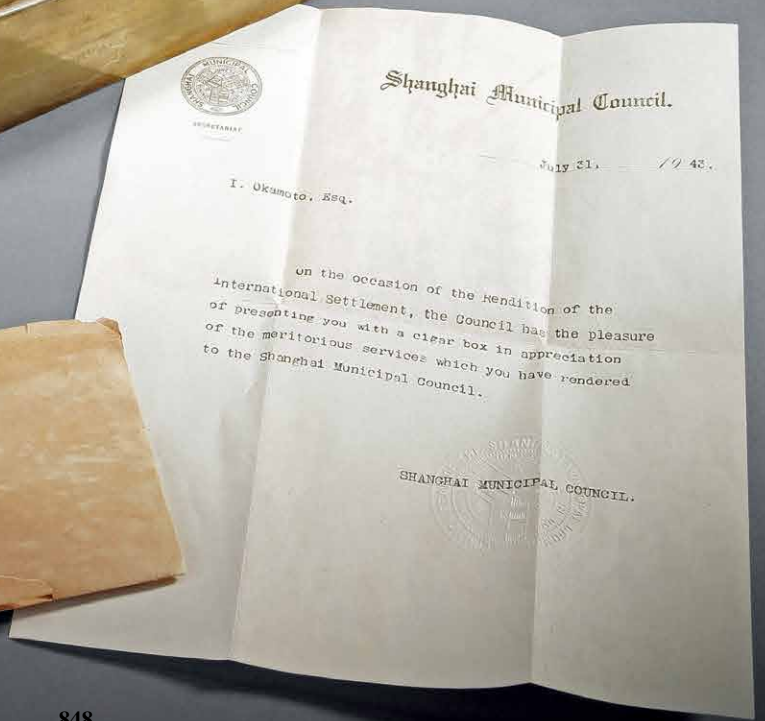 SHANGHAI MUNICIPAL COUNCIL
SECRETARIAT
Shanghai Municipal Council.
July 31, 1943.
I. Okamoto, Esq.
On the occasion of the Rendition of the
International Settlement, the Council has the pleasure
of presenting you with a cigar box in appreciation
of the meritorious services which you have rendered
to the Shanghai Municipal Council.
SHANGHAI MUNICIPAL COUNCIL.
848